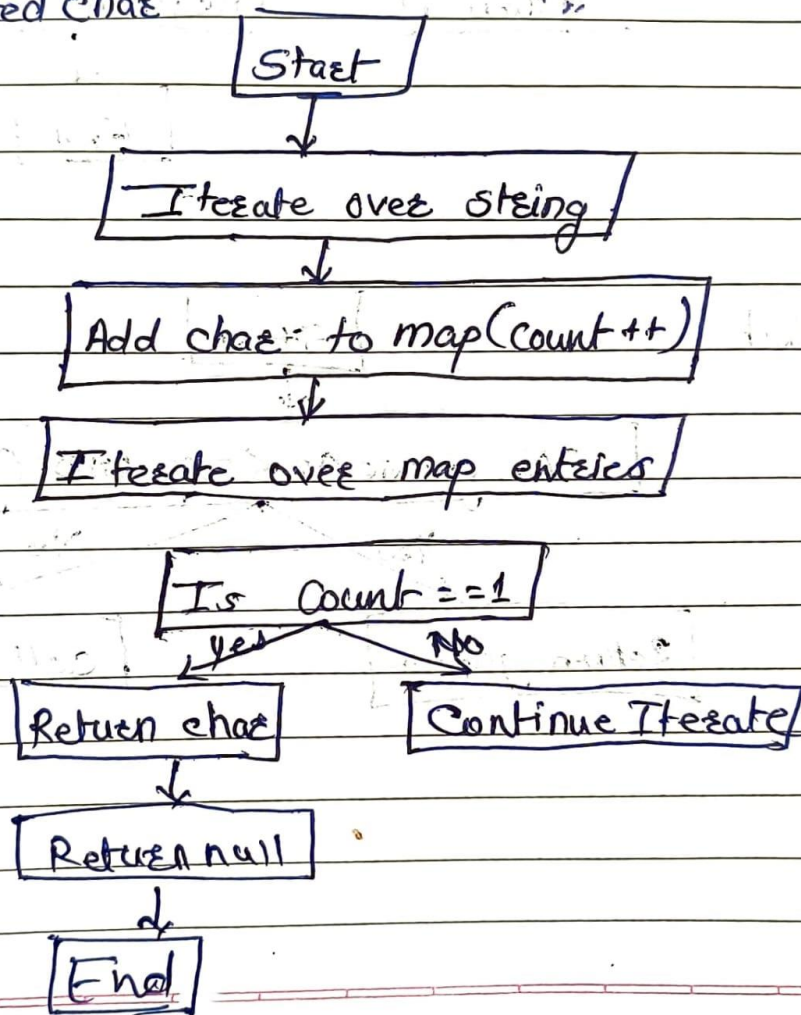 ed Char
Start
Iterate over string
Add char to map(count++)
Iterate over map entries
Is Count==1
yes No
Return char Continue Iterate
Return null
End